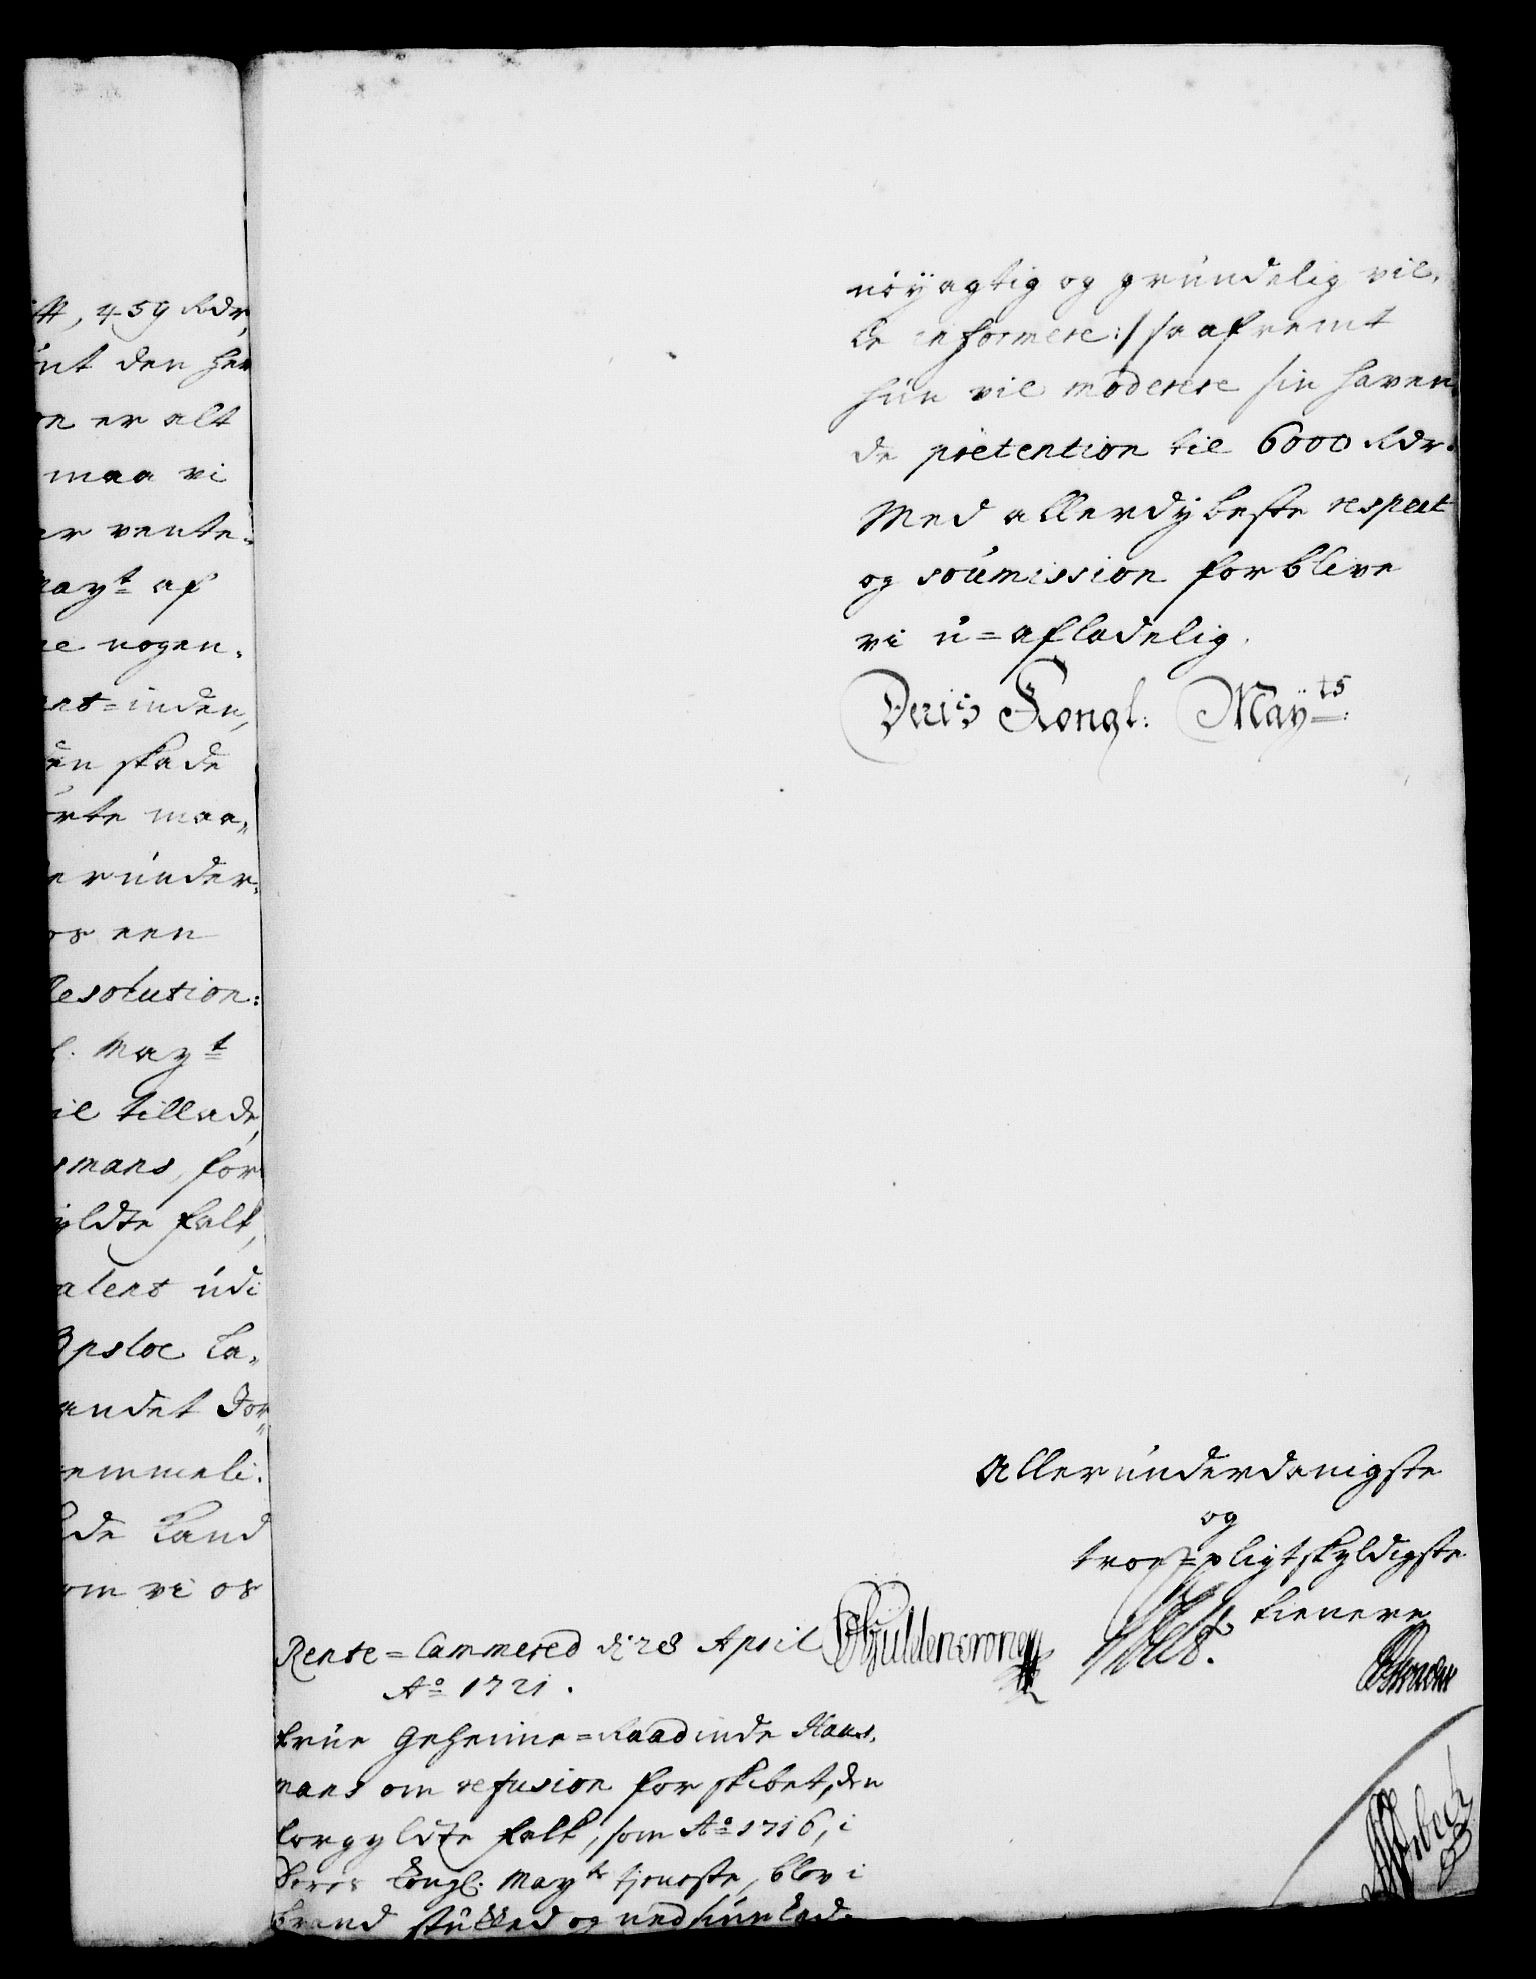 ifft, 459 Rdr,
ent den her
on er alt
maa vi
er vente-
Mayt af
ne nogen-
ent-inden,
den skade
orte maa-
erunder-
os een
Resolution:
l. Mayt
til tillade,
smans, for
yldte falk,
alent udi
Opsloe La-
andet For-
emmeli-
lde Land
om vi os
nöÿagtig og grundelig vil-
le informere :/ saafremt
hun vil moderere sin haven-
de prætention til 6000 Rdr.
Med allerdÿbeste respect
og soumission forblive
vi u=afladelig.
Deris Kongl: Maÿts:
Allerunderdanigste
og
troe-pligtskyldigste
tienere
Rente-Cammered di 28 April
Ao 1721.
Frue Geheime-Raadinde Haus-
mans om refusion for skibet, den
forgyldte falk, som Ao 1716, i
Deres Kongl. Mayts tjeneste, blev i
brand stukked og nedsiunked.